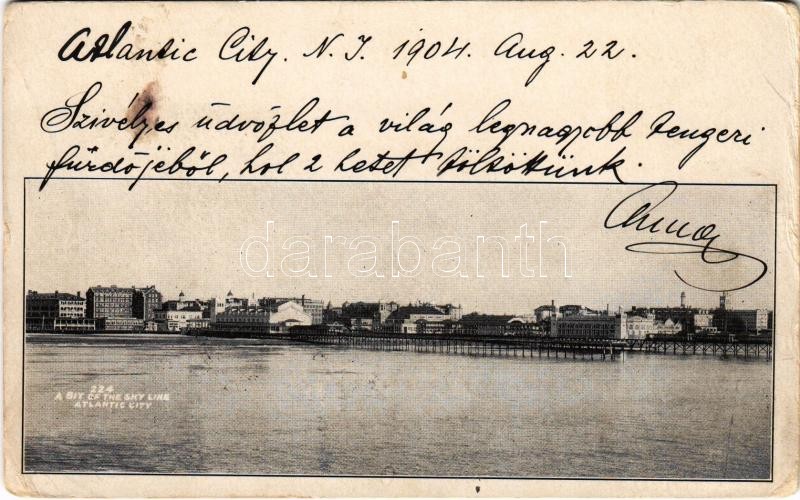 Atlantic City. N. J. 1904. Aug. 22.
Szivélyes üdvözlet a világ legnagyobb tengeri
fürdőjéből, hol 2 hetet töltöttünk.
Anna
darabanth
224
A BIT OF THE SKY LINE
ATLANTIC CITY